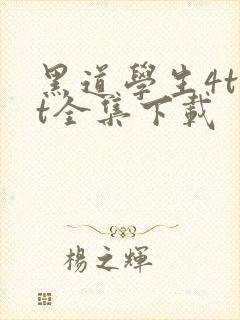 黑道學生4t
t全集下載
楊之輝